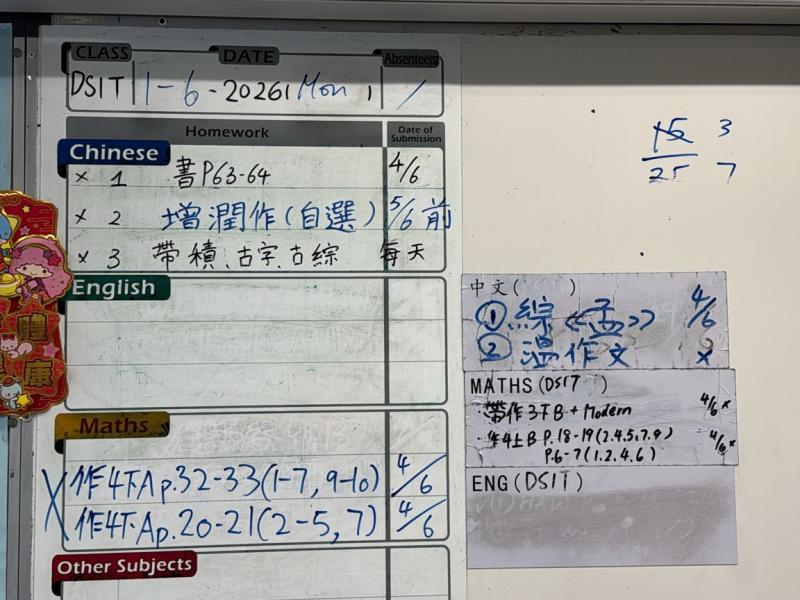 CLASS DATE Absentee(s)
DSIT 1-6-2026 Mon /
Homework Date of Submission
Chinese
× 1 書P63-64 4/6
× 2 增潤作(自選) 5/6前
× 3 帶積、古字、古綜 每天
English
Maths
× 作4下A p.32-33(1-7, 9-10) 4/6
作4下A p.20-21(2-5, 7) 4/6
Other Subjects
15 3
25 7
中文( )
① 綜《孟》 4/6
② 溫作文 ×
MATHS (DSIT )
· 帶作3下B + Modern 4/6 ×
· 作4上B P.18-19(2.4.5.7.9) 4/6 ×
P.6-7(1.2.4.6)
ENG (DSIT)
健
康